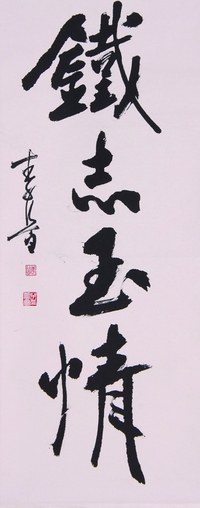 鐵志玉情